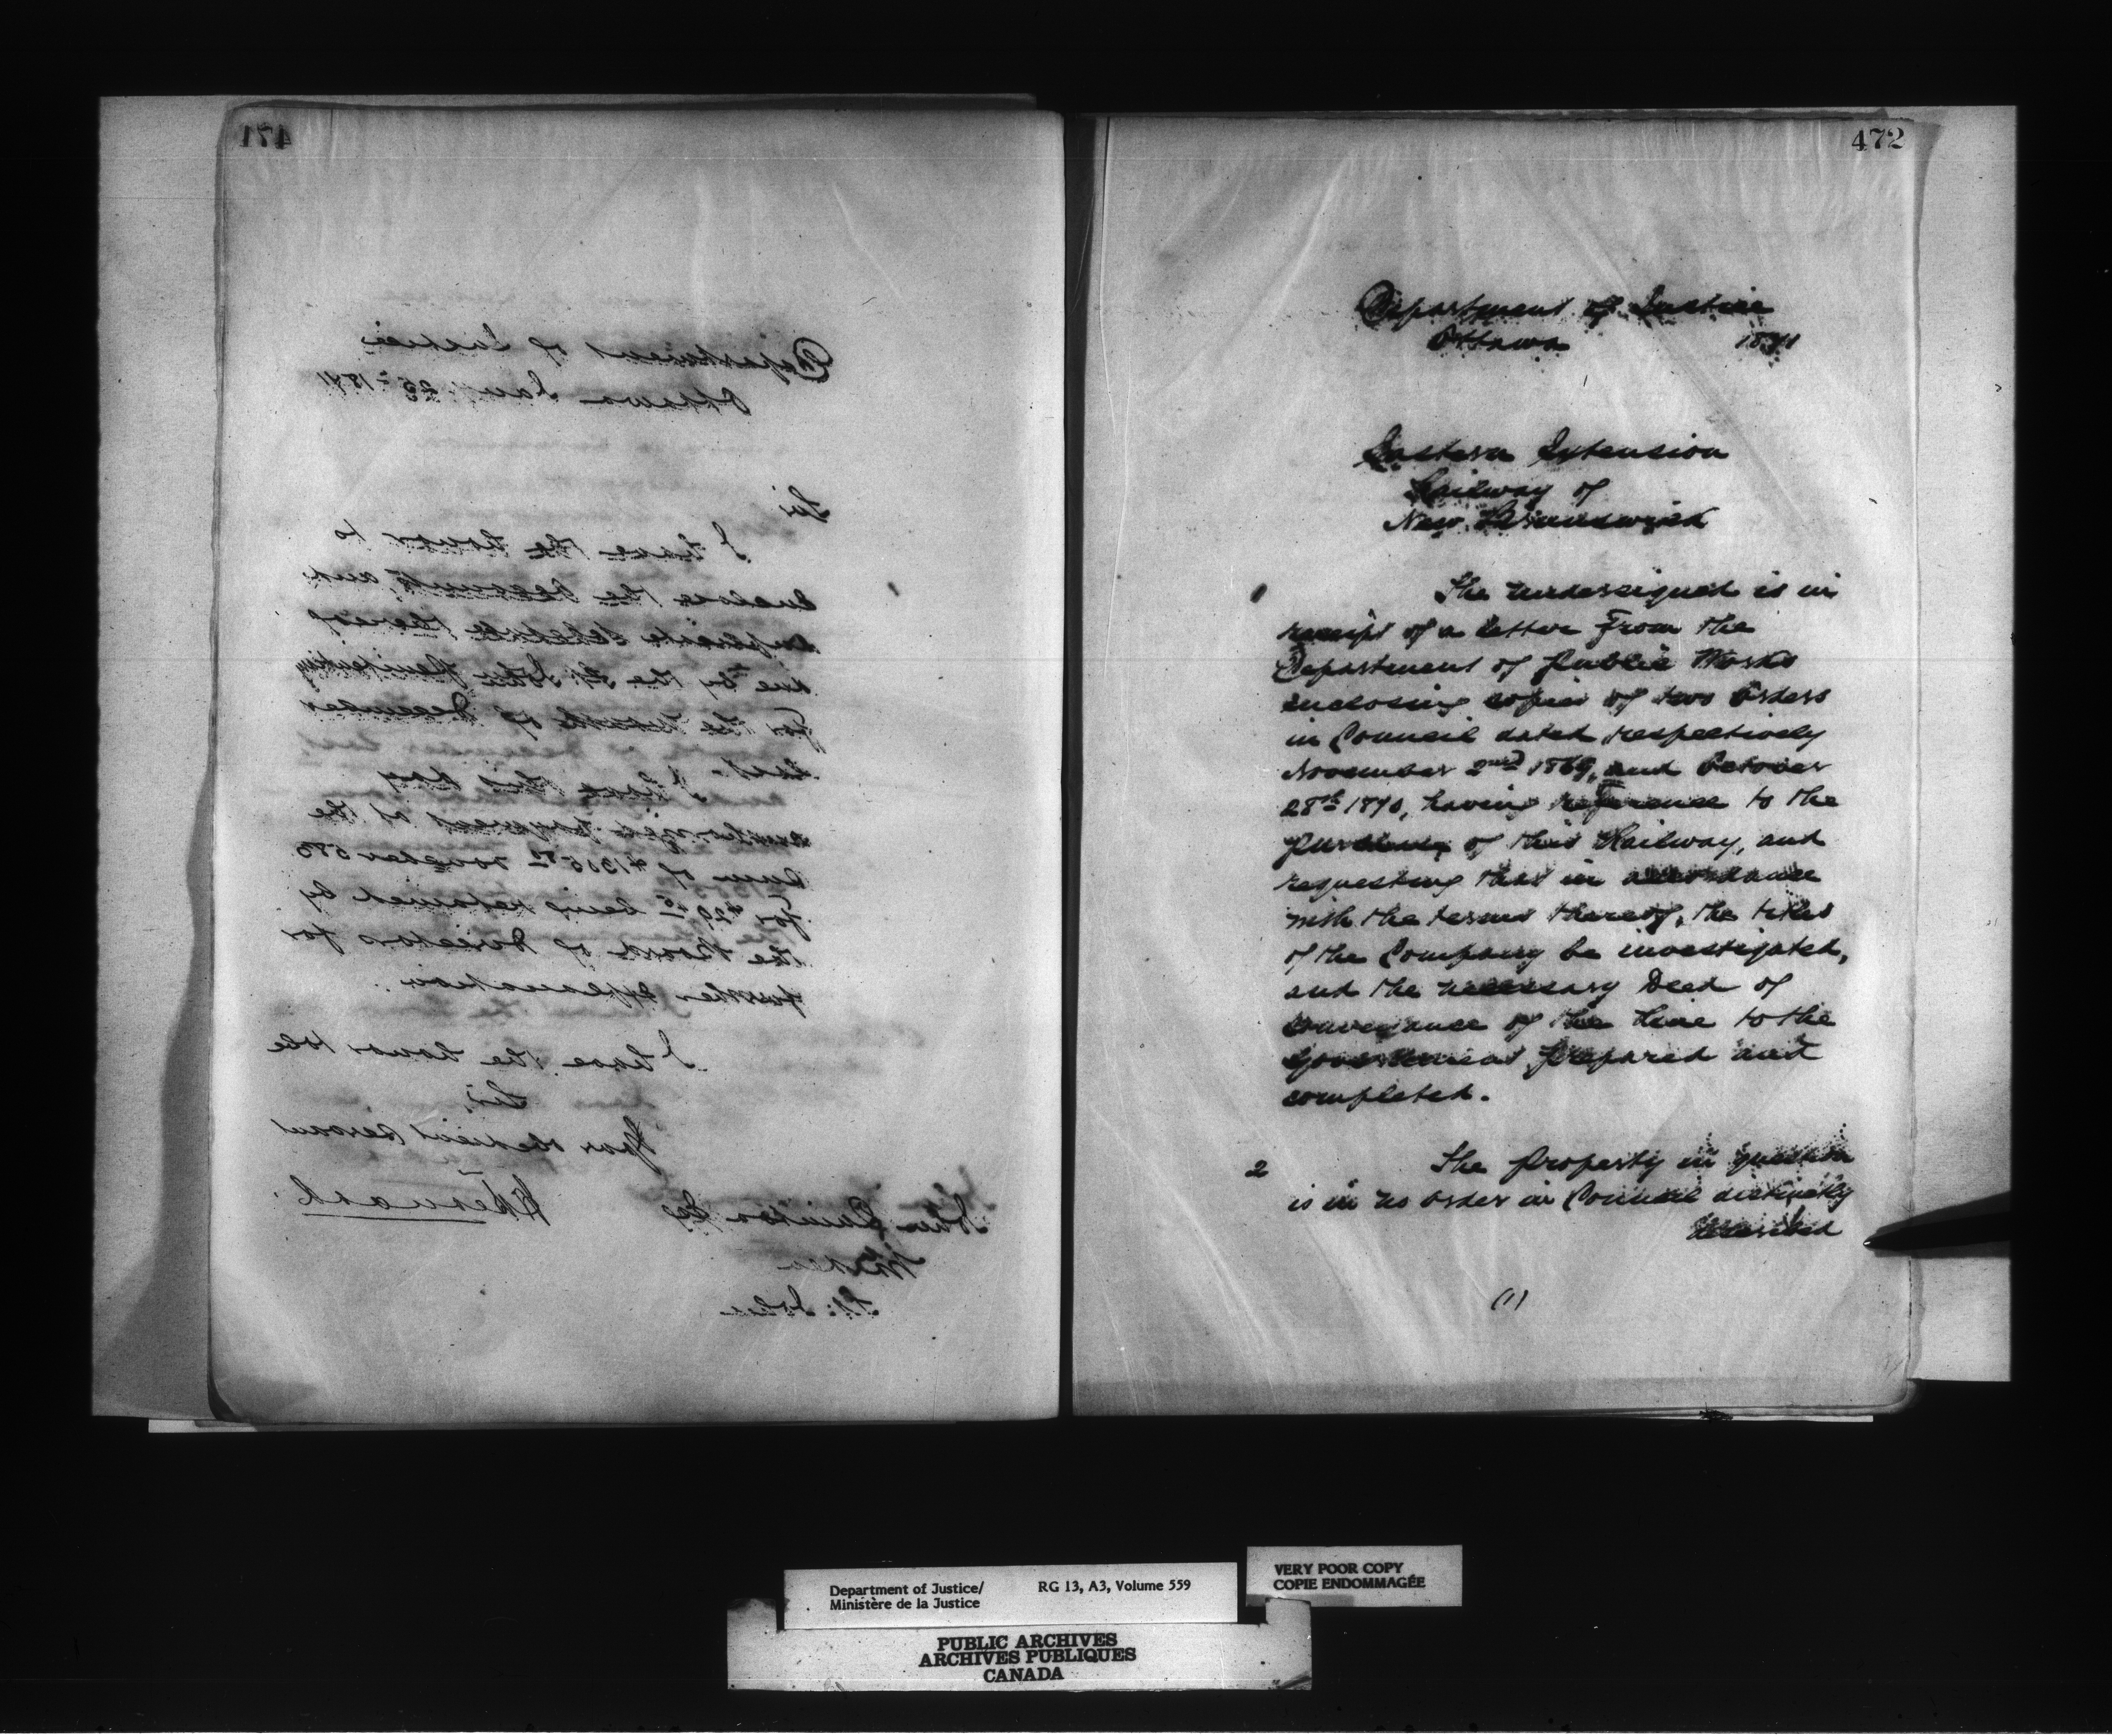 471
Department of Justice
Ottawa Jany. 25th 1871
Sir
I have the honor to
enclose the accounts, and
duplicate schedule thereof
due by the St. John Penitentiary
for the month of December
last. I have this day
authorized payment of the
sum of
for being retained by
the Board of Directors for
further explanation.
I have the honor to be
Sir,
Your obedient servant
H Bernard
John Quinton Esq
Warden
St. John
472
Department of Justice
Ottawa 1871
Eastern Extension
Railway of
New Brunswick
The undersigned is in
receipt of a letter from the
Department of Public Works
enclosing copies of two Orders
in Council dated respectively
November 2nd 1869, and October
28th 1870, having reference to the
purchase of this Railway, and
requesting that in accordance
with the terms thereof, the titles
of the Company be investigated,
and the necessary Deed of
Conveyance of the Line to the
Government prepared and
completed.
2 The property in question
is in no order in Council distinctly
described
(1)
Department of Justice/ RG 13, A3, Volume 559
Ministère de la Justice
VERY POOR COPY
COPIE ENDOMMAGÉE
PUBLIC ARCHIVES
ARCHIVES PUBLIQUES
CANADA